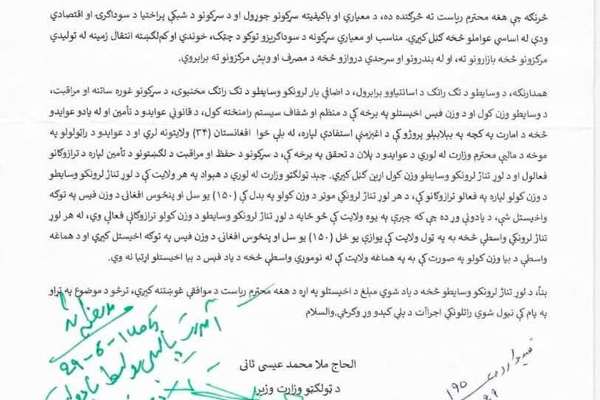 څرنګه چې هغه محترم ریاست ته څرګنده ده، د معیاري او باکیفیته سړکونو جوړول او د سړکونو د شبکې پراختیا د سوداګرۍ او اقتصادي
ودې له اساسي عواملو څخه ګڼل کیږي. مناسب او معیاري سړکونه د سوداګریزو توکو د چټک، خوندي او کم‌لګښته انتقال زمینه له تولیدي
مرکزونو څخه بازارونو ته، او له بندرونو او سرحدي دروازو څخه د مصرف او ویش مرکزونو ته برابروي.
همدارنګه، د وسایطو د تګ راتګ د اسانتیاوو برابرول، د اضافي بار لرونکو وسایطو د تګ راتګ مخنیوی، د سړکونو غوره ساتنه او مراقبت،
د وسایطو د وزن کول او د وزن فیس اخیستلو په برخه کې د منظم او شفاف سیستم رامنځته کول، د قانوني عوایدو د تأمین او له یادو عوایدو
څخه د امارت په کچه په بېلابېلو پروژو کې د اغېزمنې استفادې لپاره، له بلې خوا افغانستان (۳۴) ولایتونه لري او د عوایدو د راټولولو په
موخه د مالیې محترم وزارت له لوري د عوایدو د پلان د تحقق په برخه کې، د سړکونو د حفظ او مراقبت د لګښتونو د تأمین لپاره د ترازوګانو
فعالول او د لوړ تناژ لرونکو وسایطو د وزن کول اړین ګڼل کیږي. چېد ټولګټو وزارت له لوري د هېواد په هر ولایت کې د لوړ تناژ لرونکو وسایطو
د وزن کولو لپاره په فعالو ترازوګانو کې، د هر لوړ تناژ لرونکي موټر د وزن کولو په بدل کې (۱۵۰) یو سل او پنځوس افغانۍ د وزن فیس په توګه
واخیستل شي، د یادونې وړ ده چې چېرې په یوه ولایت کې څو ځایه د لوړ تناژ لرونکو وسایطو د وزن کولو ترازوګانې فعالې وي، له هر لوړ
تناژ لرونکې واسطې څخه به په ټول ولایت کې یوازې یو ځل (۱۵۰) یو سل او پنځوس افغانۍ د وزن فیس په توګه اخیستل کیږي او د هماغه
واسطې د بیا وزن کولو په صورت کې به په هماغه ولایت کې له نوموړې واسطې څخه د یاد فیس د بیا اخیستلو اړتیا نه وي.
بناً، د لوړ تناژ لرونکو وسایطو څخه د یاد شوي مبلغ د اخیستلو په اړه د هغه محترم ریاست د موافقې غوښتنه کیږي، ترڅو د موضوع په پړاو
په پام کې نیول شوي راتلونکي اجراآت د پلي کېدو وړ وګرځي.والسلام
الحاج ملا محمد عیسی ثاني
د ټولګټو وزارت وزیر